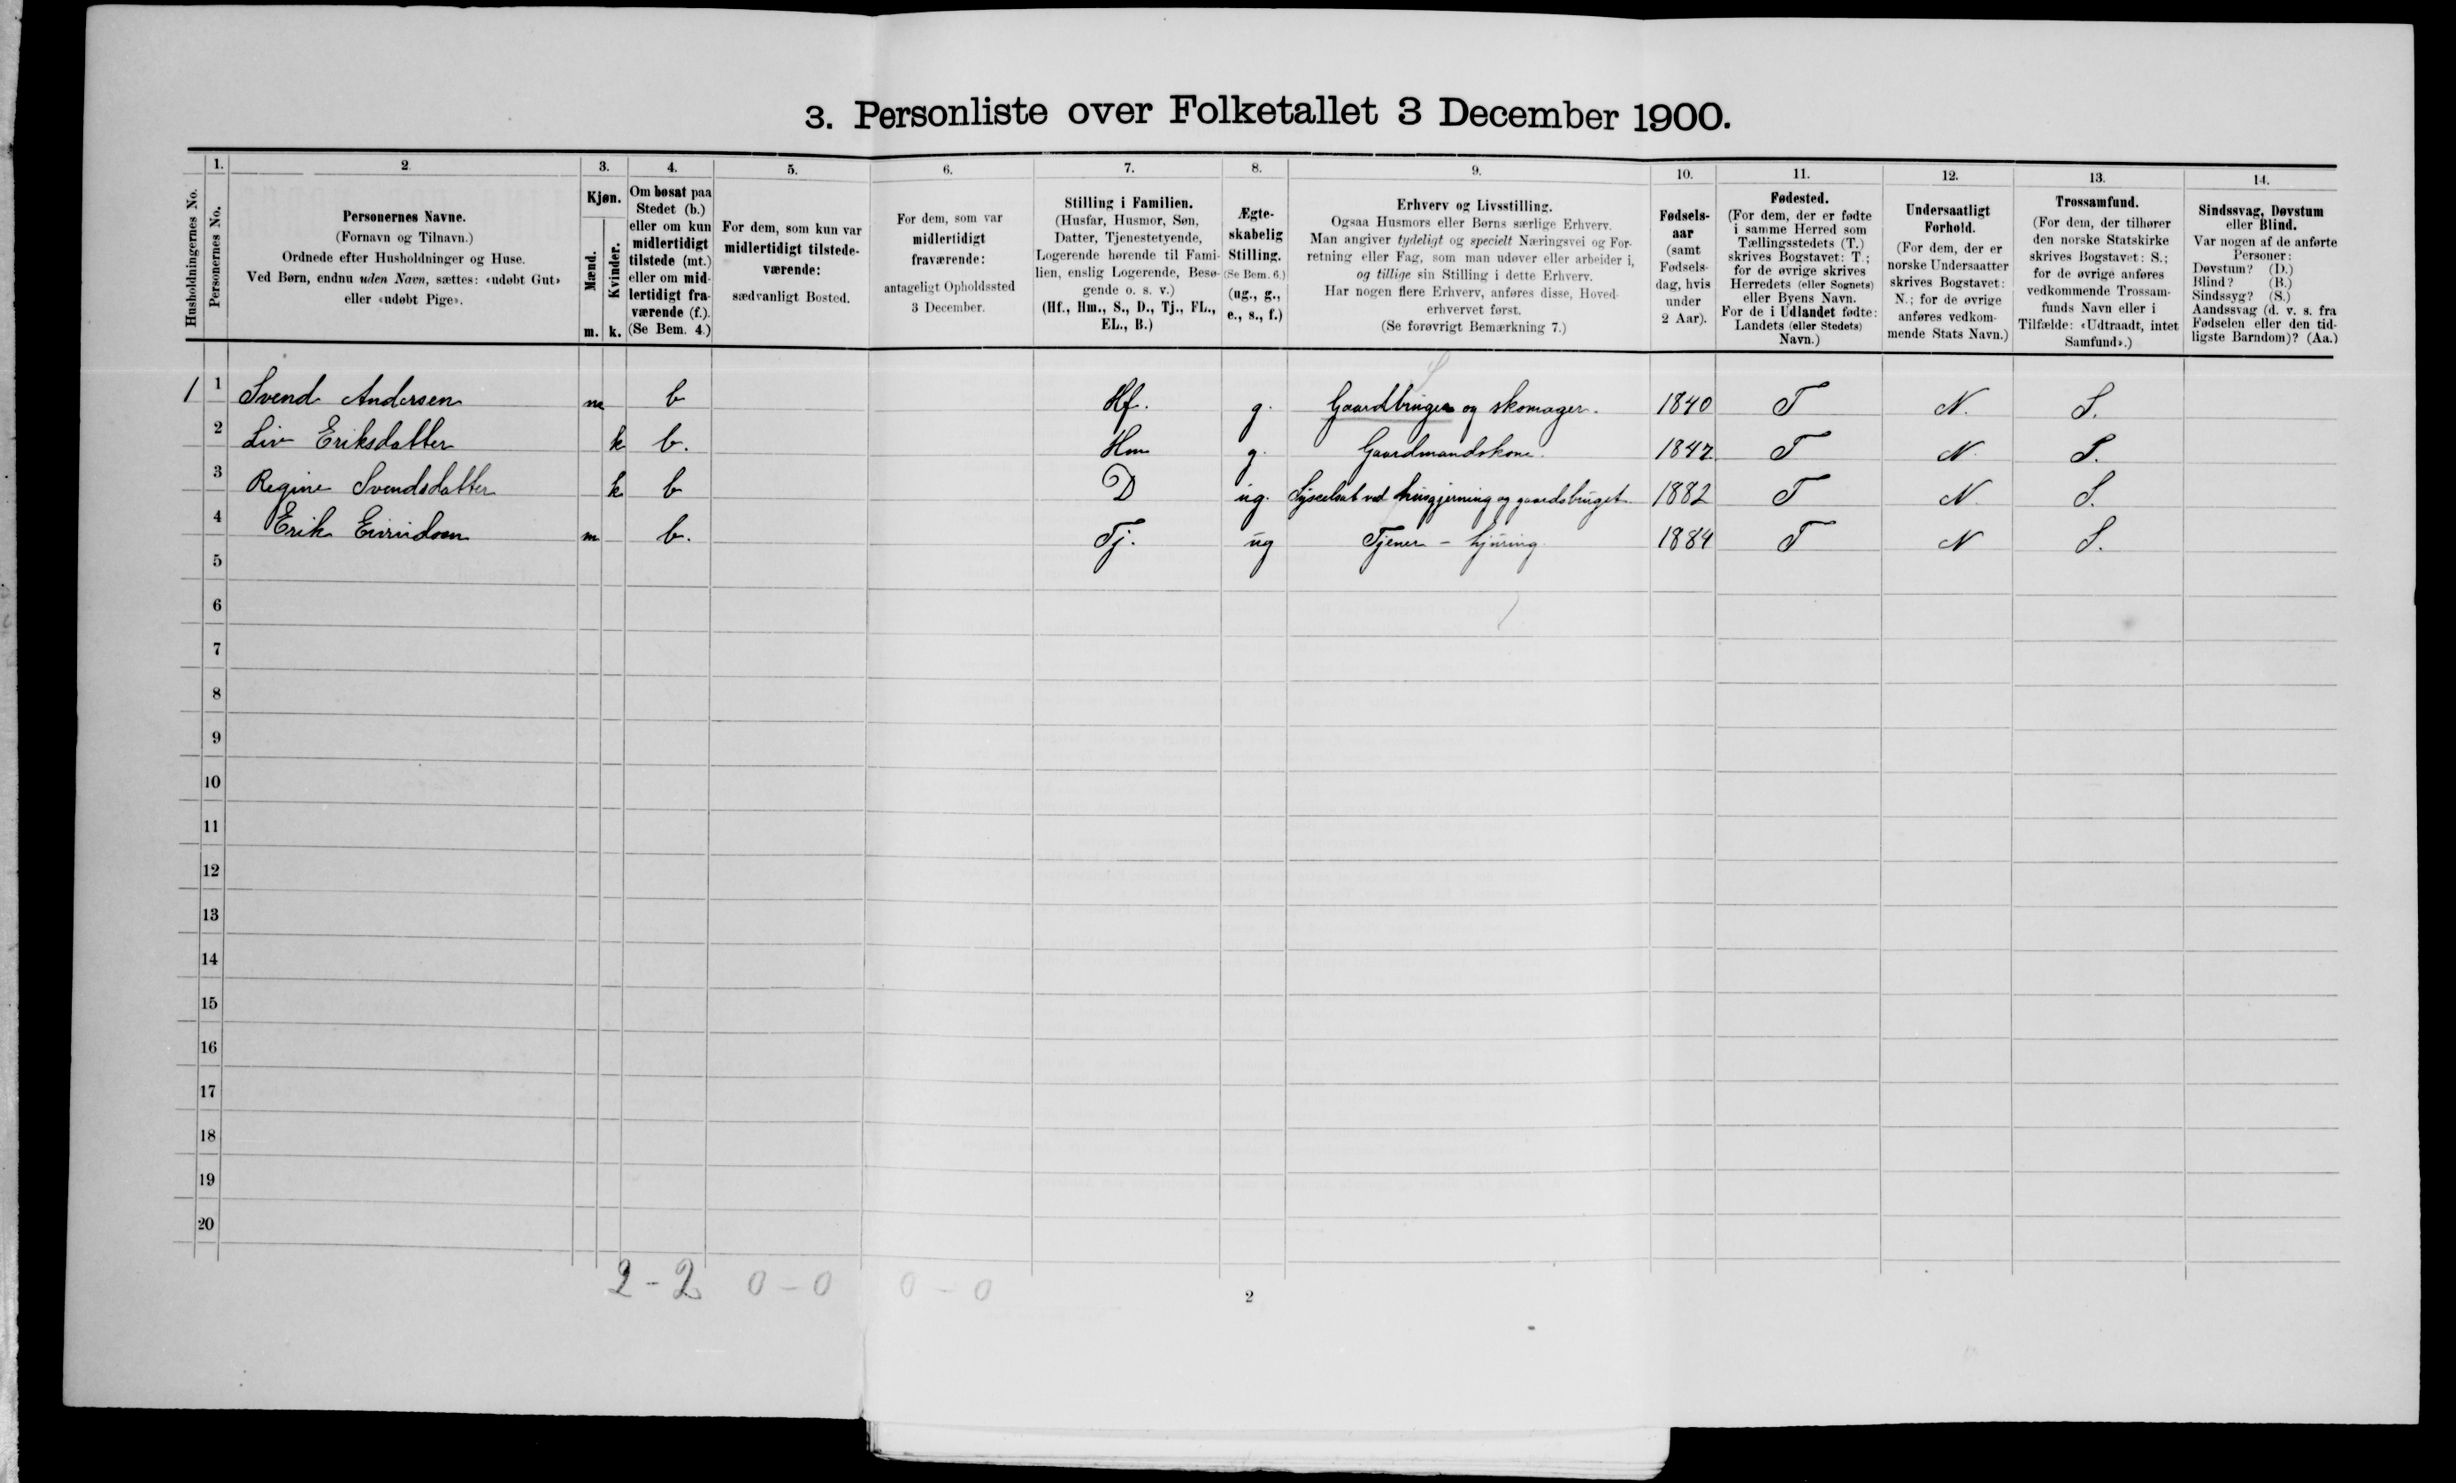 3. Personliste over Folketallet 3 December 1900.
Husholdningernes No.
1.
Personernes No.
2.
Personernes Navne.
(Fornavn og Tilnavn.)
Ordnede efter Husholdninger og Huse.
Ved Børn, endnu uden Navn, sættes: «udøbt Gut»
eller «udøbt Pige».
3.
Kjøn.
Mænd.
m.
Kvinder.
k.
4.
Om bosat paa
Stedet (b.)
eller om kun
midlertidigt
tilstede (mt.)
eller om mid-
lertidigt fra-
værende (f.).
(Se Bem. 4.)
5.
For dem, som kun var
midlertidigt tilstede-
værende:
sædvanligt Bosted.
6.
For dem, som var
midlertidigt
fraværende:
antageligt Opholdssted
3 December.
7.
Stilling i Familien.
(Husfar, Husmor, Søn,
Datter, Tjenestetyende,
Logerende hørende til Fami-
lien, enslig Logerende, Besø-
gende o. s. v.)
(Hf., Hm., S., D., Tj., FL.,
EL., B.)
8.
Ægte-
skabelig
Stilling.
(Se Bem. 6.)
(ug., g.,
e., s., f.)
9.
Erhverv og Livsstilling.
Ogsaa Husmors eller Børns særlige Erhverv.
Man angiver tydeligt og specielt Næringsvei og For-
retning eller Fag, som man udøver eller arbeider i,
og tillige sin Stilling i dette Erhverv.
Har nogen flere Erhverv, anføres disse, Hoved-
erhvervet først.
(Se forøvrigt Bemærkning 7.)
10.
Fødsels-
aar
(samt
Fødsels-
dag, hvis
under
2 Aar).
11.
Fødested.
(For dem, der er fødte
i samme Herred som
Tællingsstedets (T.)
skrives Bogstavet: T.;
for de øvrige skrives
Herredets (eller Sognets)
eller Byens Navn.
For de i Udlandet fødte:
Landets (eller Stedets)
Navn.)
12.
Undersaatligt
Forhold.
(For dem, der er
norske Undersaatter
skrives Bogstavet:
N.; for de øvrige
anføres vedkom-
mende Stats Navn.)
13.
Trossamfund.
(For dem, der tilhører
den norske Statskirke
skrives Bogstavet: S.;
for de øvrige anføres
vedkommende Trossam-
funds Navn eller i
Tilfælde: «Udtraadt, intet
Samfund».)
14.
Sindssvag, Døvstum
eller Blind.
Var nogen af de anførte
Personer:
Døvstum? (D.)
Blind? (B.)
Sindssyg? (S.)
Aandssvag (d. v. s. fra
Fødselen eller den tid-
ligste Barndom)? (Aa.)
1 1 Svend Andersen m b Hf. g. Gaardbruger og skomager. 1840 T N. S.
2 Liv Eriksdatter k b. Hm g. Gaardmandskone. 1847 T N. S.
3 Regine Svendsdatter k b D ug. Sysselsat ved husgjerning og gaardsbruget 1882 T N S.
4 Erik m b. Tj. ug Tjener - hjuring 1884 T N S.
5
6
7
8
9
10
11
12
13
14
15
16
17
18
19
20
2 - 2 0 - 0 0 - 0
2